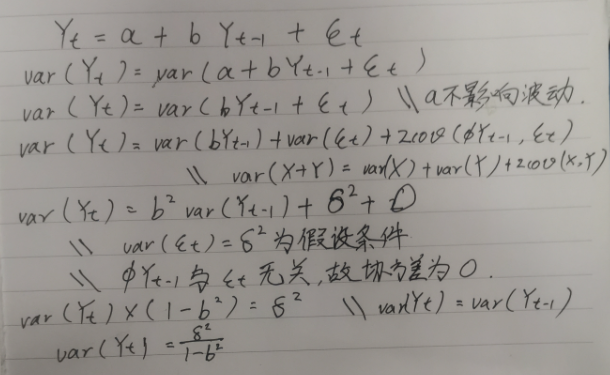 Yt = a + b Yt-1 + εt
var(Yt) = var(a + bYt-1 + εt)
var(Yt) = var(bYt-1 + εt) \\ a不影响波动.
var(Yt) = var(bYt-1) + var(εt) + 2cov(ϕYt-1, εt)
\\ var(X+Y) = var(X) + var(Y) + 2cov(X,Y)
var(Yt) = b² var(Yt-1) + δ² + 0
\\ var(εt) = δ² 为假设条件
\\ ϕYt-1 与 εt 无关, 故协方差为0.
var(Yt) × (1-b²) = δ² \\ var(Yt) = var(Yt-1)
var(Yt) = δ²/(1-b²)